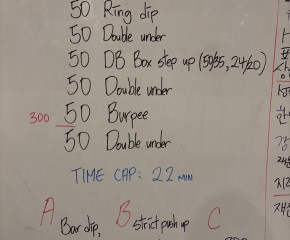 50 Ring dip
50 Double under
50 DB Box step up (50/35, 24/20)
50 Double under
300 50 Burpee
50 Double under
TIME CAP: 22 MIN
A Bar dip, B strict push up C